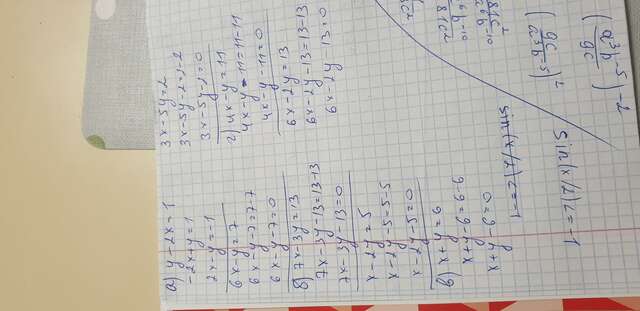 а) y-2x=1
-2x+y=1
2x-y=1
6x-y=7
6x-y-7=7-7
6x-y-7=0
б) 7x-3y=13
7x-3y-13=13-13
7x-3y-13=0
x-2y=5
x-2y-5=5-5
x-2y-5=0
в) x+y=6
x+y-6=6-6
x+y-6=0
3x-5y=2
3x-5y-2=2-2
3x-5y-2=0
г) 4x-y=11
4x-y-11=11-11
4x-y-11=0
6x-2y=13
6x-2y-13=13-13
6x-2y 13=0
sin(x/2)2=-1
sin(x/2)2=-1
(a³b-5/9c)-2
(9c/a³b-5)2